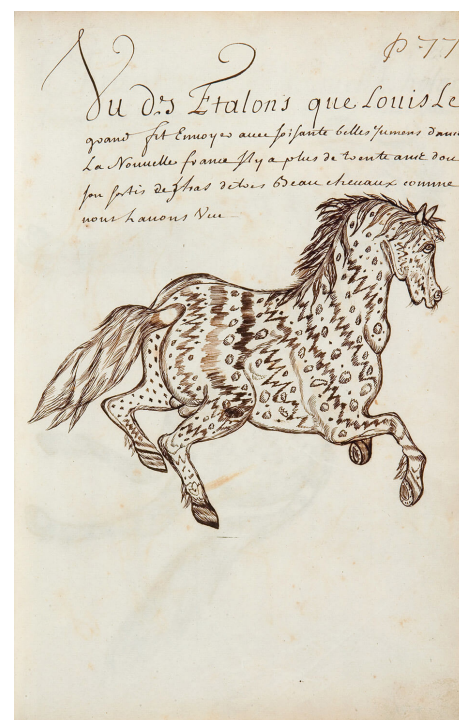 p. 77
Vu des Etalons que Louis Le
grand fit Envoyer auec soisante belles Jumens dans
La Nouuelle france Jl y a plus de trente ans dou
son sortis de haras de tres Beau cheuaux comme
nous Lauons Vue